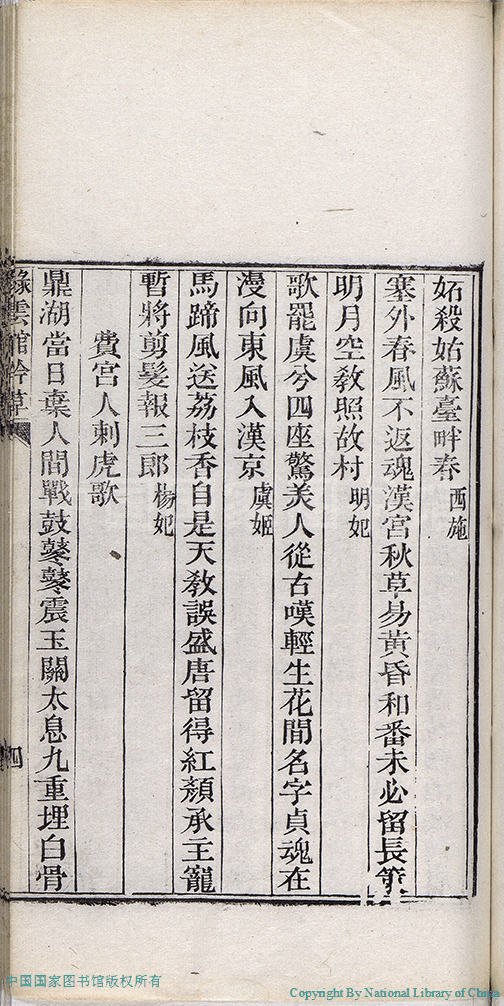 妬殺姑蘇臺畔春 西施
塞外春風不返魂漢宮秋草易黃昏和番未必留長策
明月空教照故村 明妃
歌罷虞兮四座驚美人從古嘆輕生花間名字貞魂在
漫向東風入漢京 虞姬
馬蹄風送荔枝香自是天教誤盛唐留得紅顏承主寵
暫將剪髮報三郎 楊妃
費宮人刺虎歌
鼎湖當日棄人間戰鼓鼕鼕震玉關太息九重埋白骨
綠雲館吟草
四
中国国家图书馆版权所有
Copyright By National Library of China